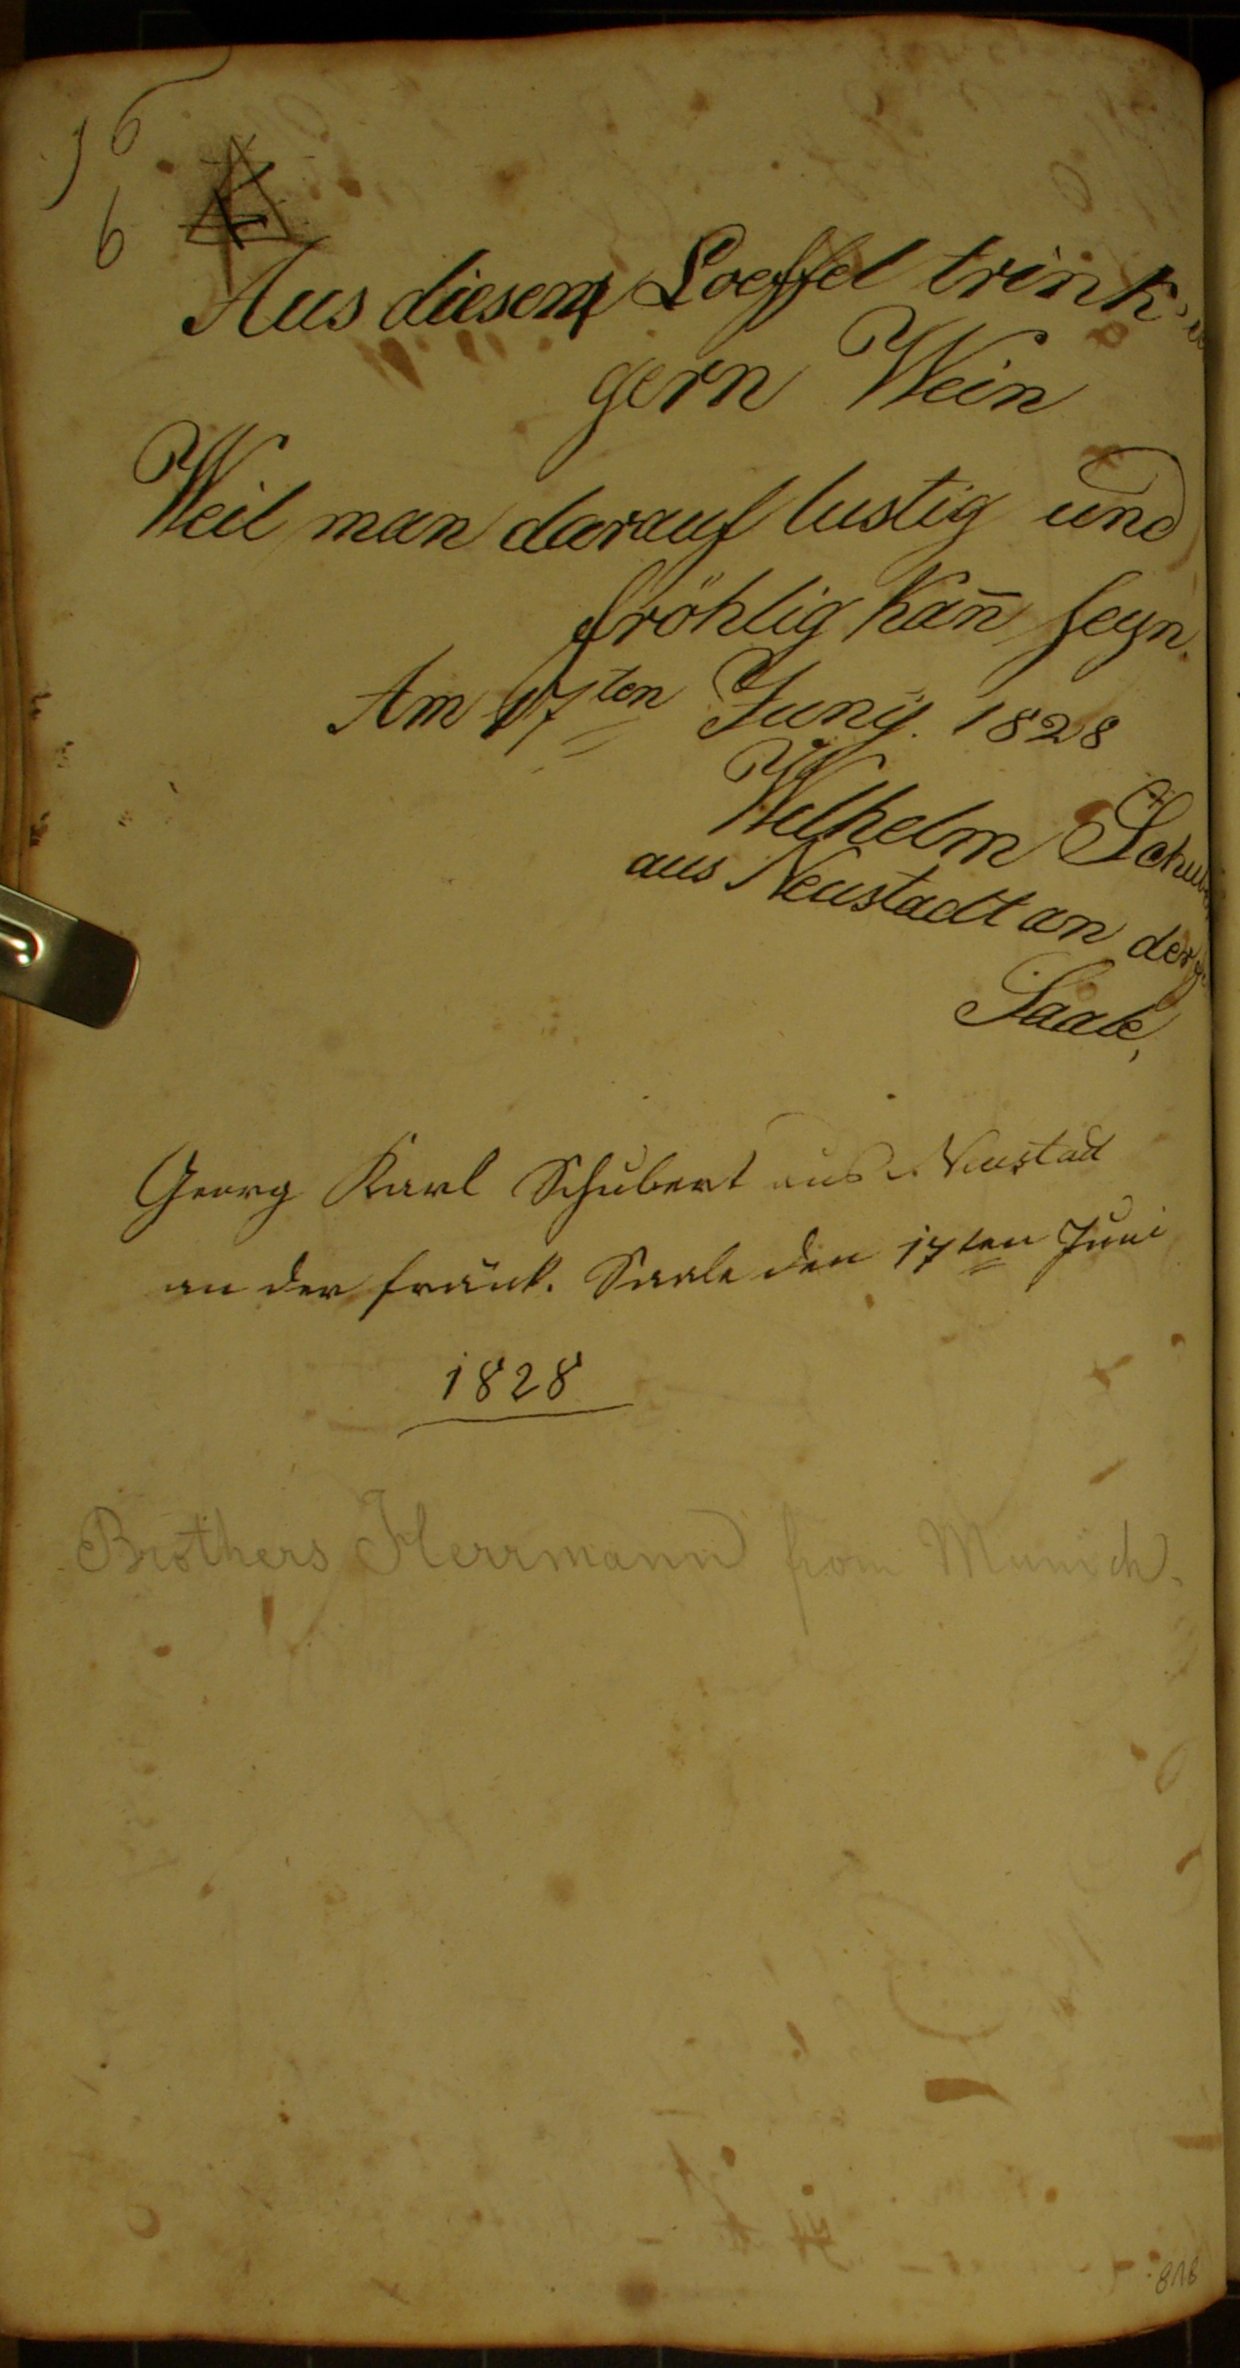 16
6
Aus diesem Loeffel trink
gern Wein
Weil man darauf lustig und
fröhlig kan̄ seyn.
Am 17ten Juny. 1828
Wilhelm Schub
aus Neustadt an der
Saale,
Georg Karl Schubert aus Neustadt
an der fränk. Saale den 17ten Juni
1828
Brothers Herrmann from Munich.